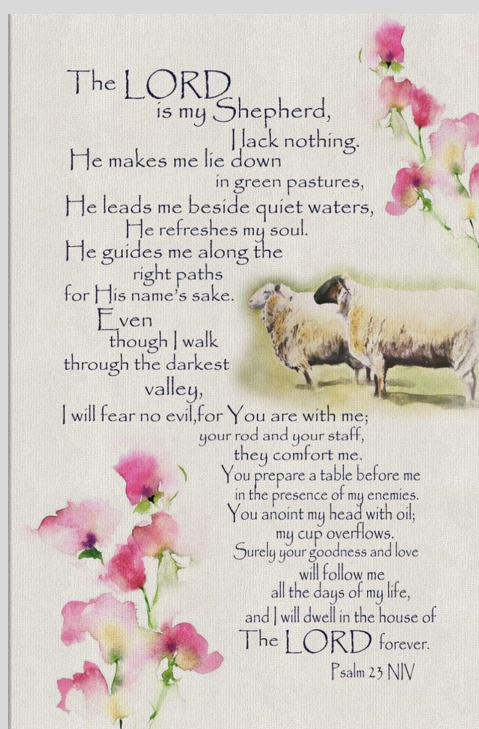 The LORD
is my Shepherd,
I lack nothing.
He makes me lie down
in green pastures,
He leads me beside quiet waters,
He refreshes my soul.
He guides me along the
right paths
for His name's sake.
Even
though I walk
through the darkest
valley,
I will fear no evil,for You are with me;
your rod and your staff,
they comfort me.
You prepare a table before me
in the presence of my enemies.
You anoint my head with oil;
my cup overflows.
Surely your goodness and love
will follow me
all the days of my life,
and I will dwell in the house of
The LORD forever.
Psalm 23 NIV